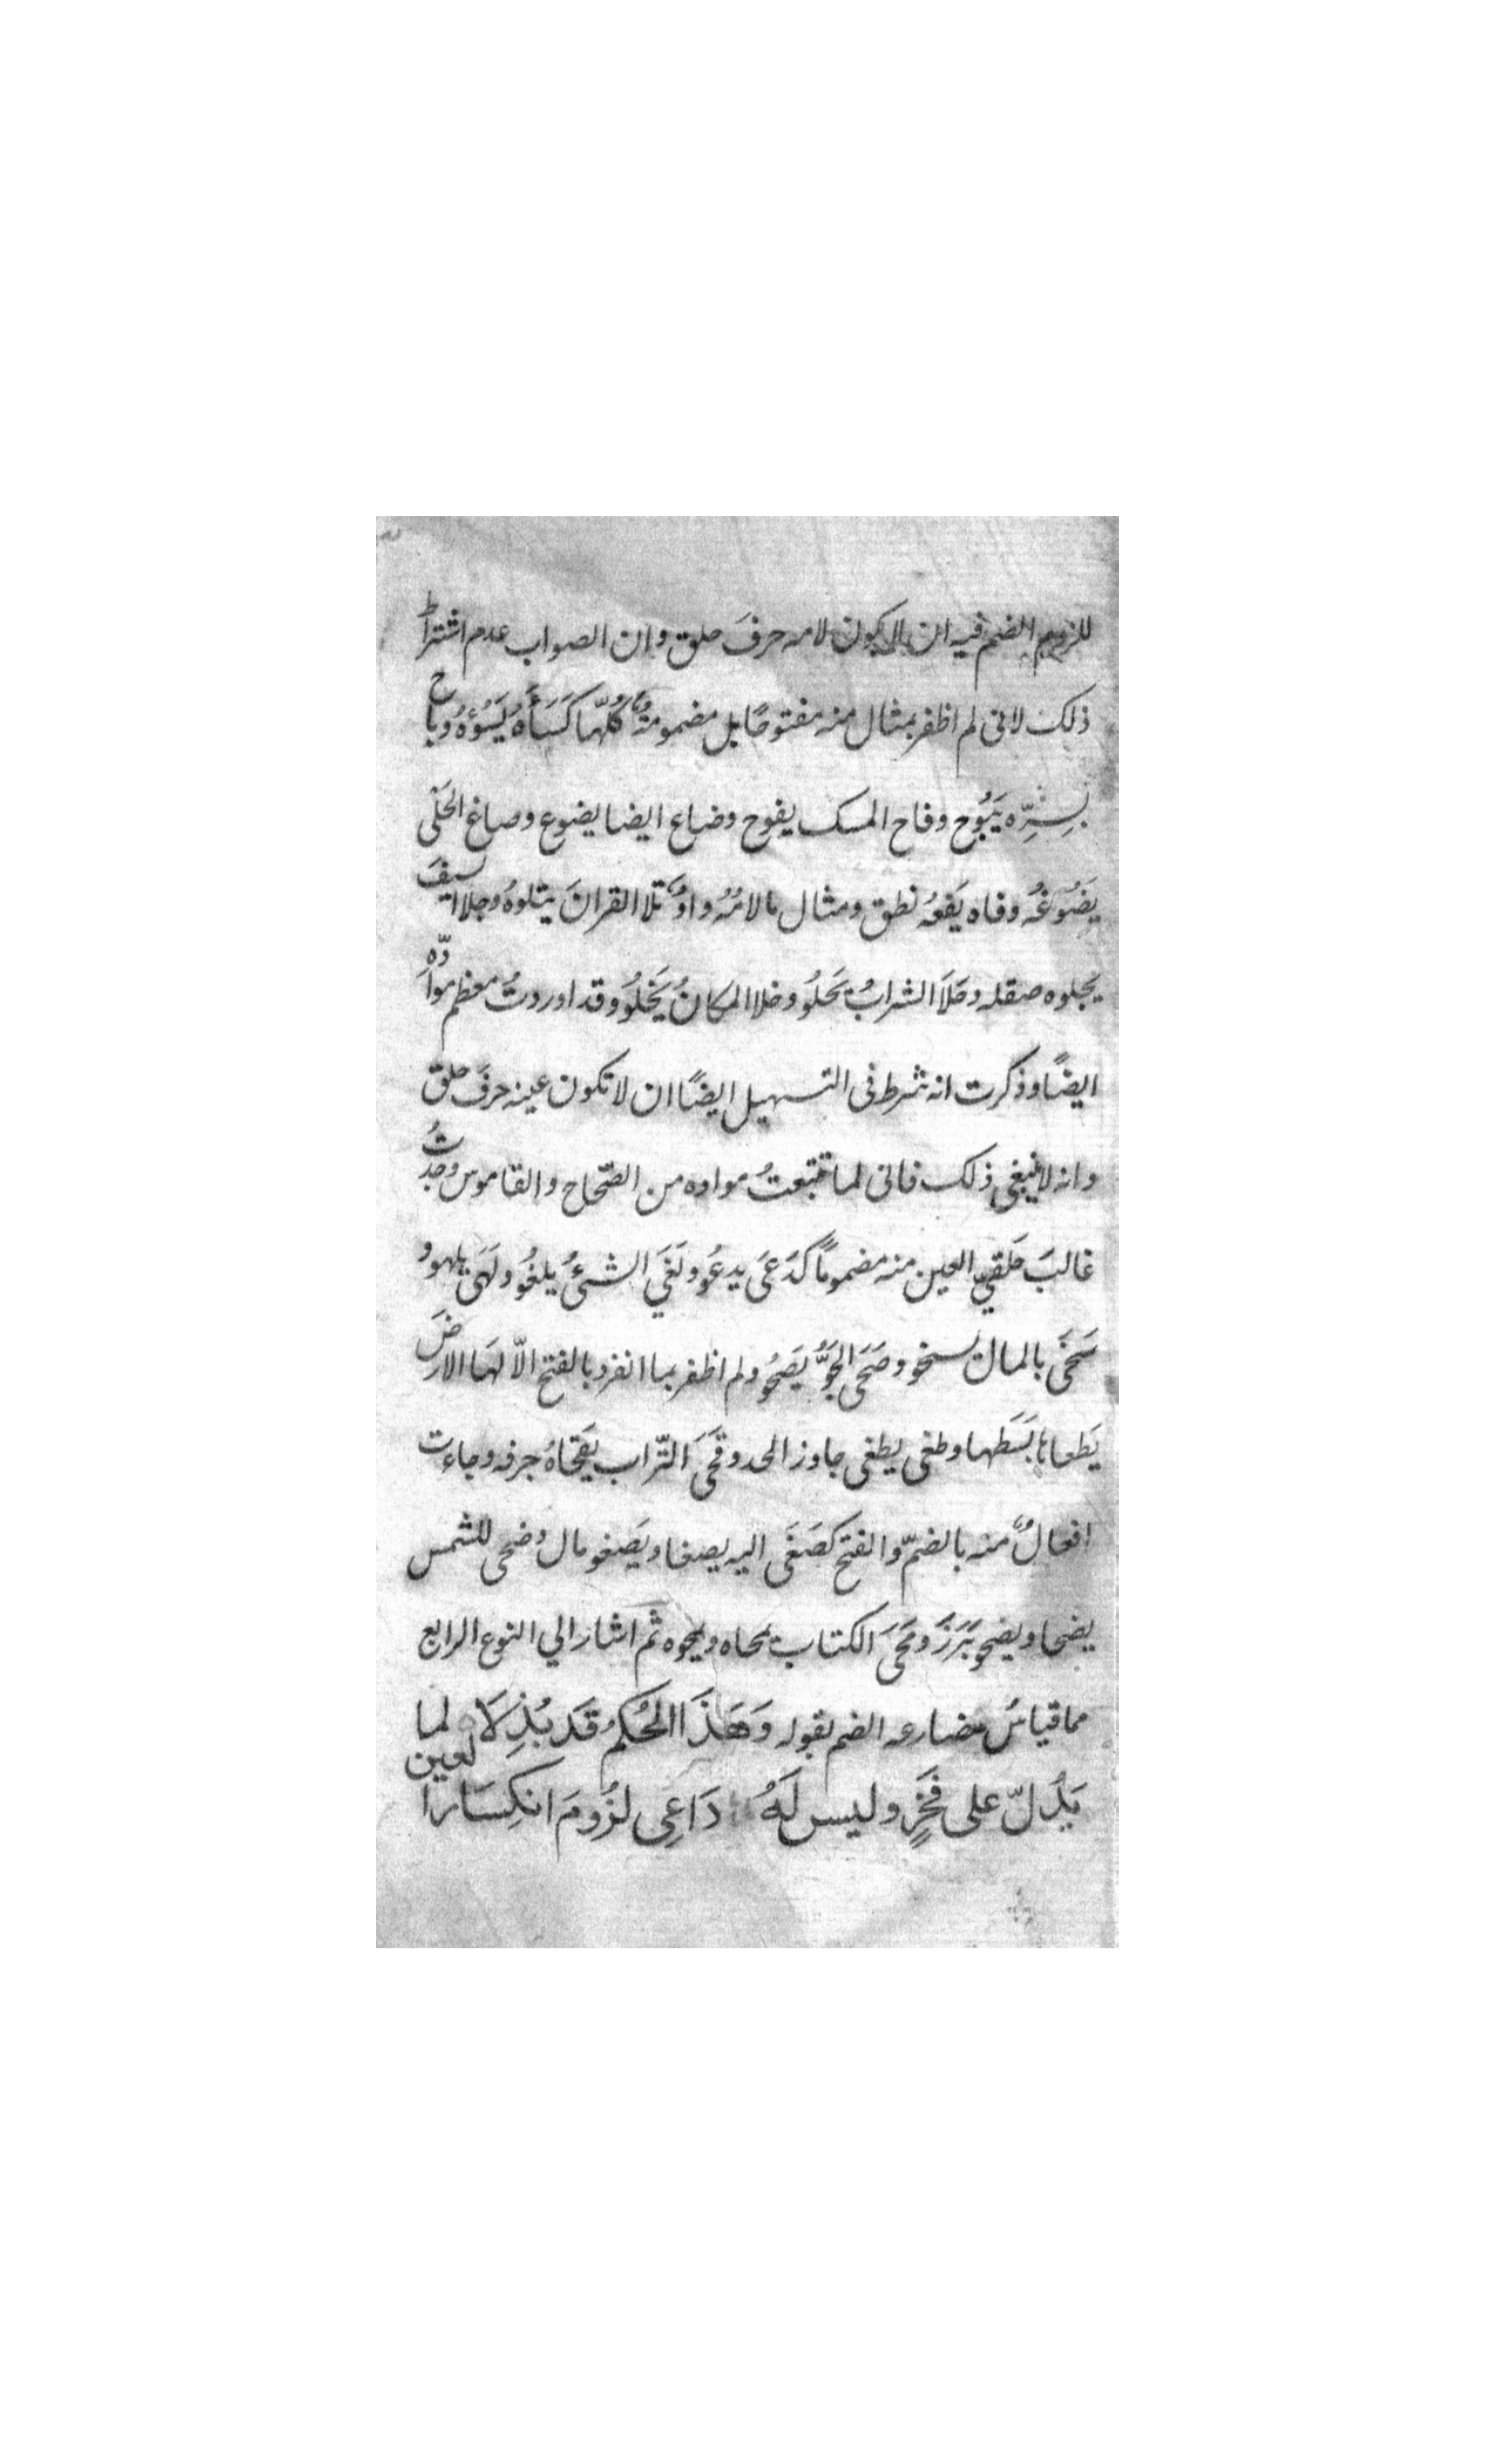 للزوم الضم فيه ان لا يكون لامه حرفَ حلق وان الصواب عدم اشتراط
ذلك لانى لم اظفر بمثال منه مفتوحًا بل مضمومةٌ كُلّها كَسَأَهُ يَسُوْءُهُ وباح
بِسِرِّه يَبُوُح وفاح المسك يفوح وضاع ايضا يضوع وصاغ الحَلْى
يَصُوْغُه وفاه يَفُوهُ نطق ومثال مالامُهُ واوٌ تلا القرانَ يتلوهُ وجلا السيفَ
يجلوه صقله وحَلَا الشرابُ يَحلُو وخلا المكانُ يَخْلُو وقد اوردتُ معظم موادّه
ايضًا وذكرت انه شرط فى التسهيل ايضًا ان لا تكون عينه حرفَ حلق
وانه لا ينبغى ذلك فانى لما تتبعتُ مواده من الصّحاح والقاموس وجدتُ
غالبَ حَلقيّ العين منه مضمومًا كَدَعَى يدعُو ولَغَيَ الشئُ يلغُو ولَهَى يلهو و
سَخَى بالمال يسخو وصَحَى الجَوُّ يَصْحُو ولم اظفر بما انفرد بالفتح الّا لهَا الارضَ
يَطحاها بَسَطَها وطغى يطغى جاوز الحد وقَحَىَ التّراب يَقحَاهُ جرفه وجاءت
افعالٌ منه بالضمّ والفتح كصَغَى اليه يصغا ويَصغو مال وضحى للشمس
يضحا ويضحو بَرَزَ ومَحَىَ الكتاب يمحاه ويمحوه ثم اشار الي النوع الرابع
مما قياسُ مضارعه الضم بقوله وَهَذَا الحُكمُ قَد بُذِلَا لما
يَدُلّ على فَخَرٍ وليس لَهُ دَاعِى لزُومَ انكِسَارا لعين